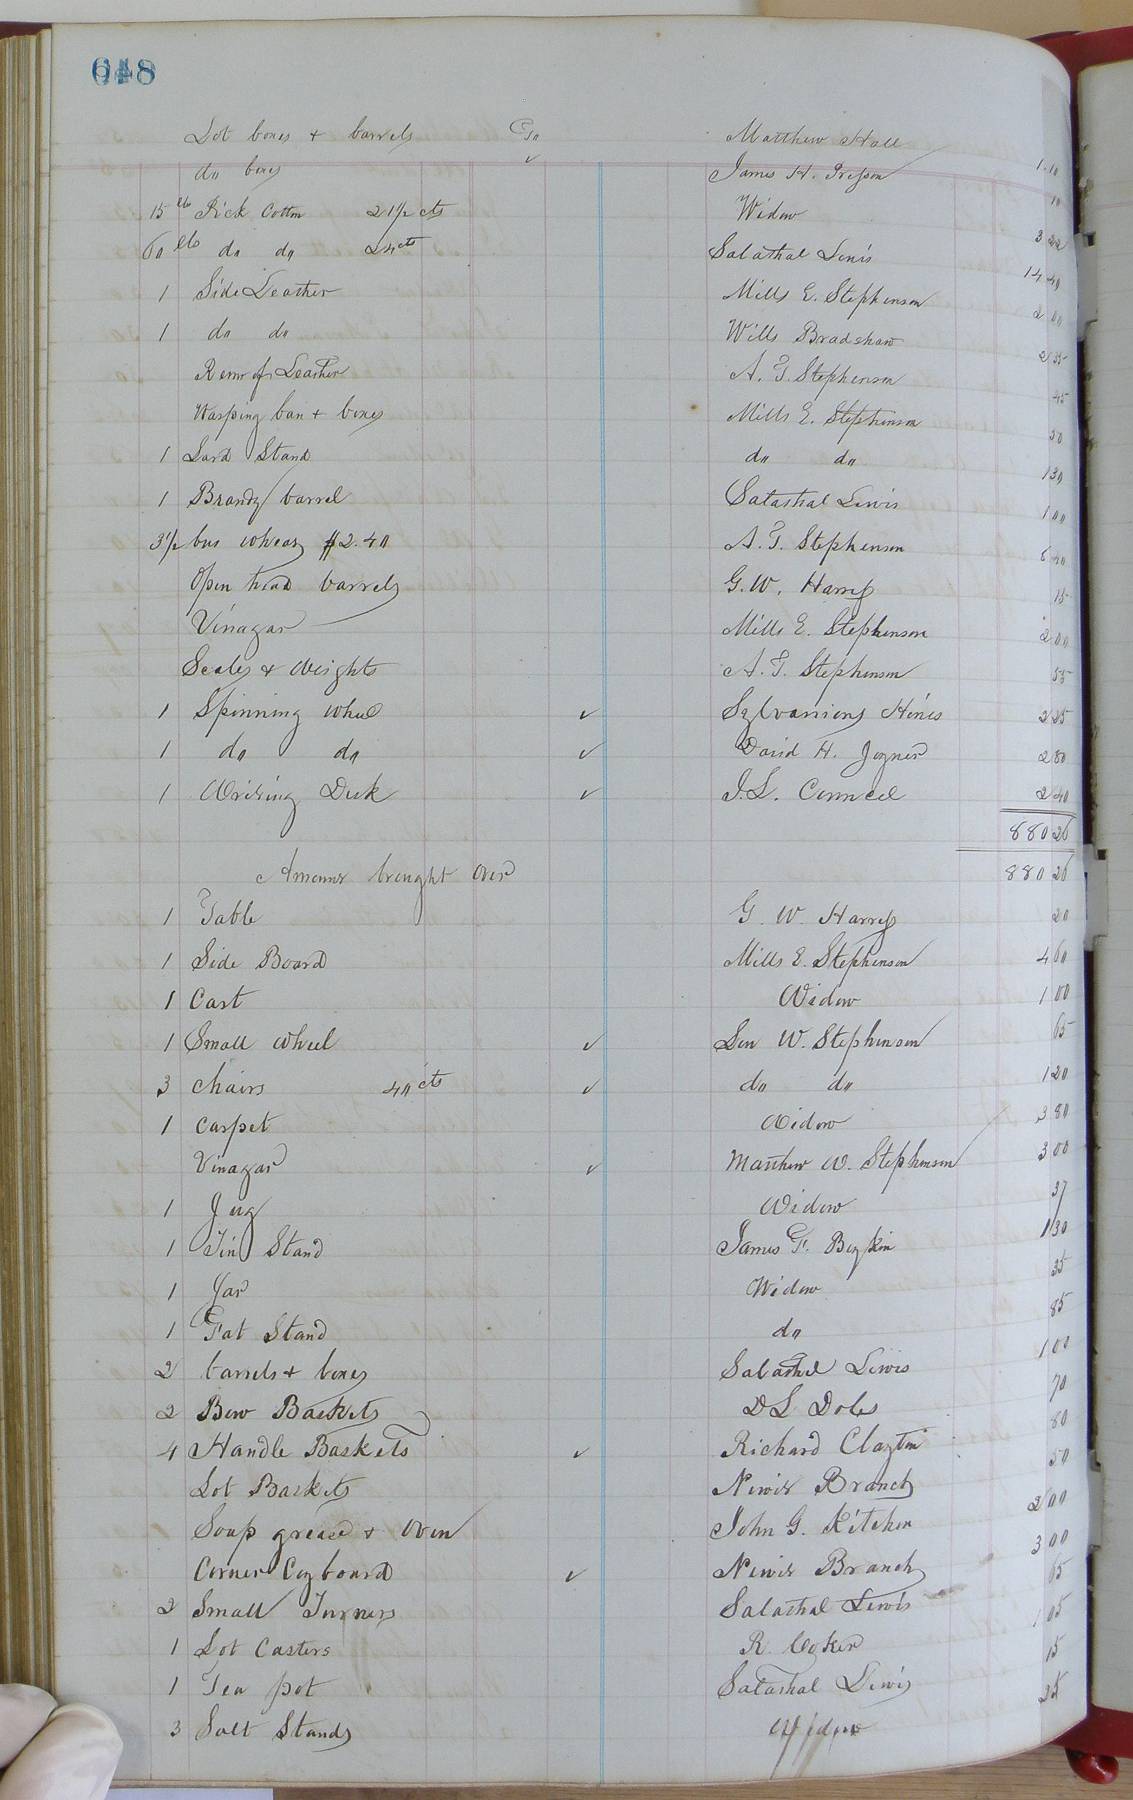 648
Lot boxes & barrels Matthew Hall 1.10
do boxes James H. Presson 10
15 lb Pick Cotton 21½ cts Widow 3 22
60 lb do do 24 cts Salathal Lewis 14 40
1 Side Leather Mills E. Stephenson 2 00
1 do do Wills Bradshaw 2 35
Remr of Leather A. T. Stephenson 45
Warping bars & boxes Mills E. Stephenson 50
1 Lard Stand do do 1 30
1 Brandy barrel Salathal Lewis 1 00
3½ bus wheat $2.40 A. T. Stephenson 8 40
Open head barrels G. W. Harriss 15
Vinagar Mills E. Stephenson 2 00
Scales & Weights A. T. Stephenson 55
1 Spinning wheel Sylvanions Hines 2 25
1 do do David H. Joyner 2 80
1 Writing Desk J. L. Councel 2 40
880 26
Amount brought over 880 26
1 Table G. W. Harriss 20
1 Side Board Mills E. Stephenson 4 60
1 Cart Widow 1 00
1 Small wheel Len W. Stephenson 65
3 Chairs 40 cts do do 1 20
1 Carpet Widow 3 80
Vinagar Matthew W. Stephenson 3 00
1 Jug Widow 37
1 Tin Stand James F. Boykin 1 30
1 Jar Widow 35
1 Fat Stand do 85
2 barrels & boxes Salathel Lewis 1 00
2 Bow Baskets D L Doles 70
4 Handle Baskets Richard Clayton 80
Lot Baskets Newit Branch 50
Soup grease & Oven John G. Kitchen 2 00
Corner Cupboard Newit Branch 3 00
2 Small Turners Salathal Lewis 65
1 Lot Casters R. Coker 1 05
1 Tea pot Salathal Lewis 15
3 Salt Stands Widow 25